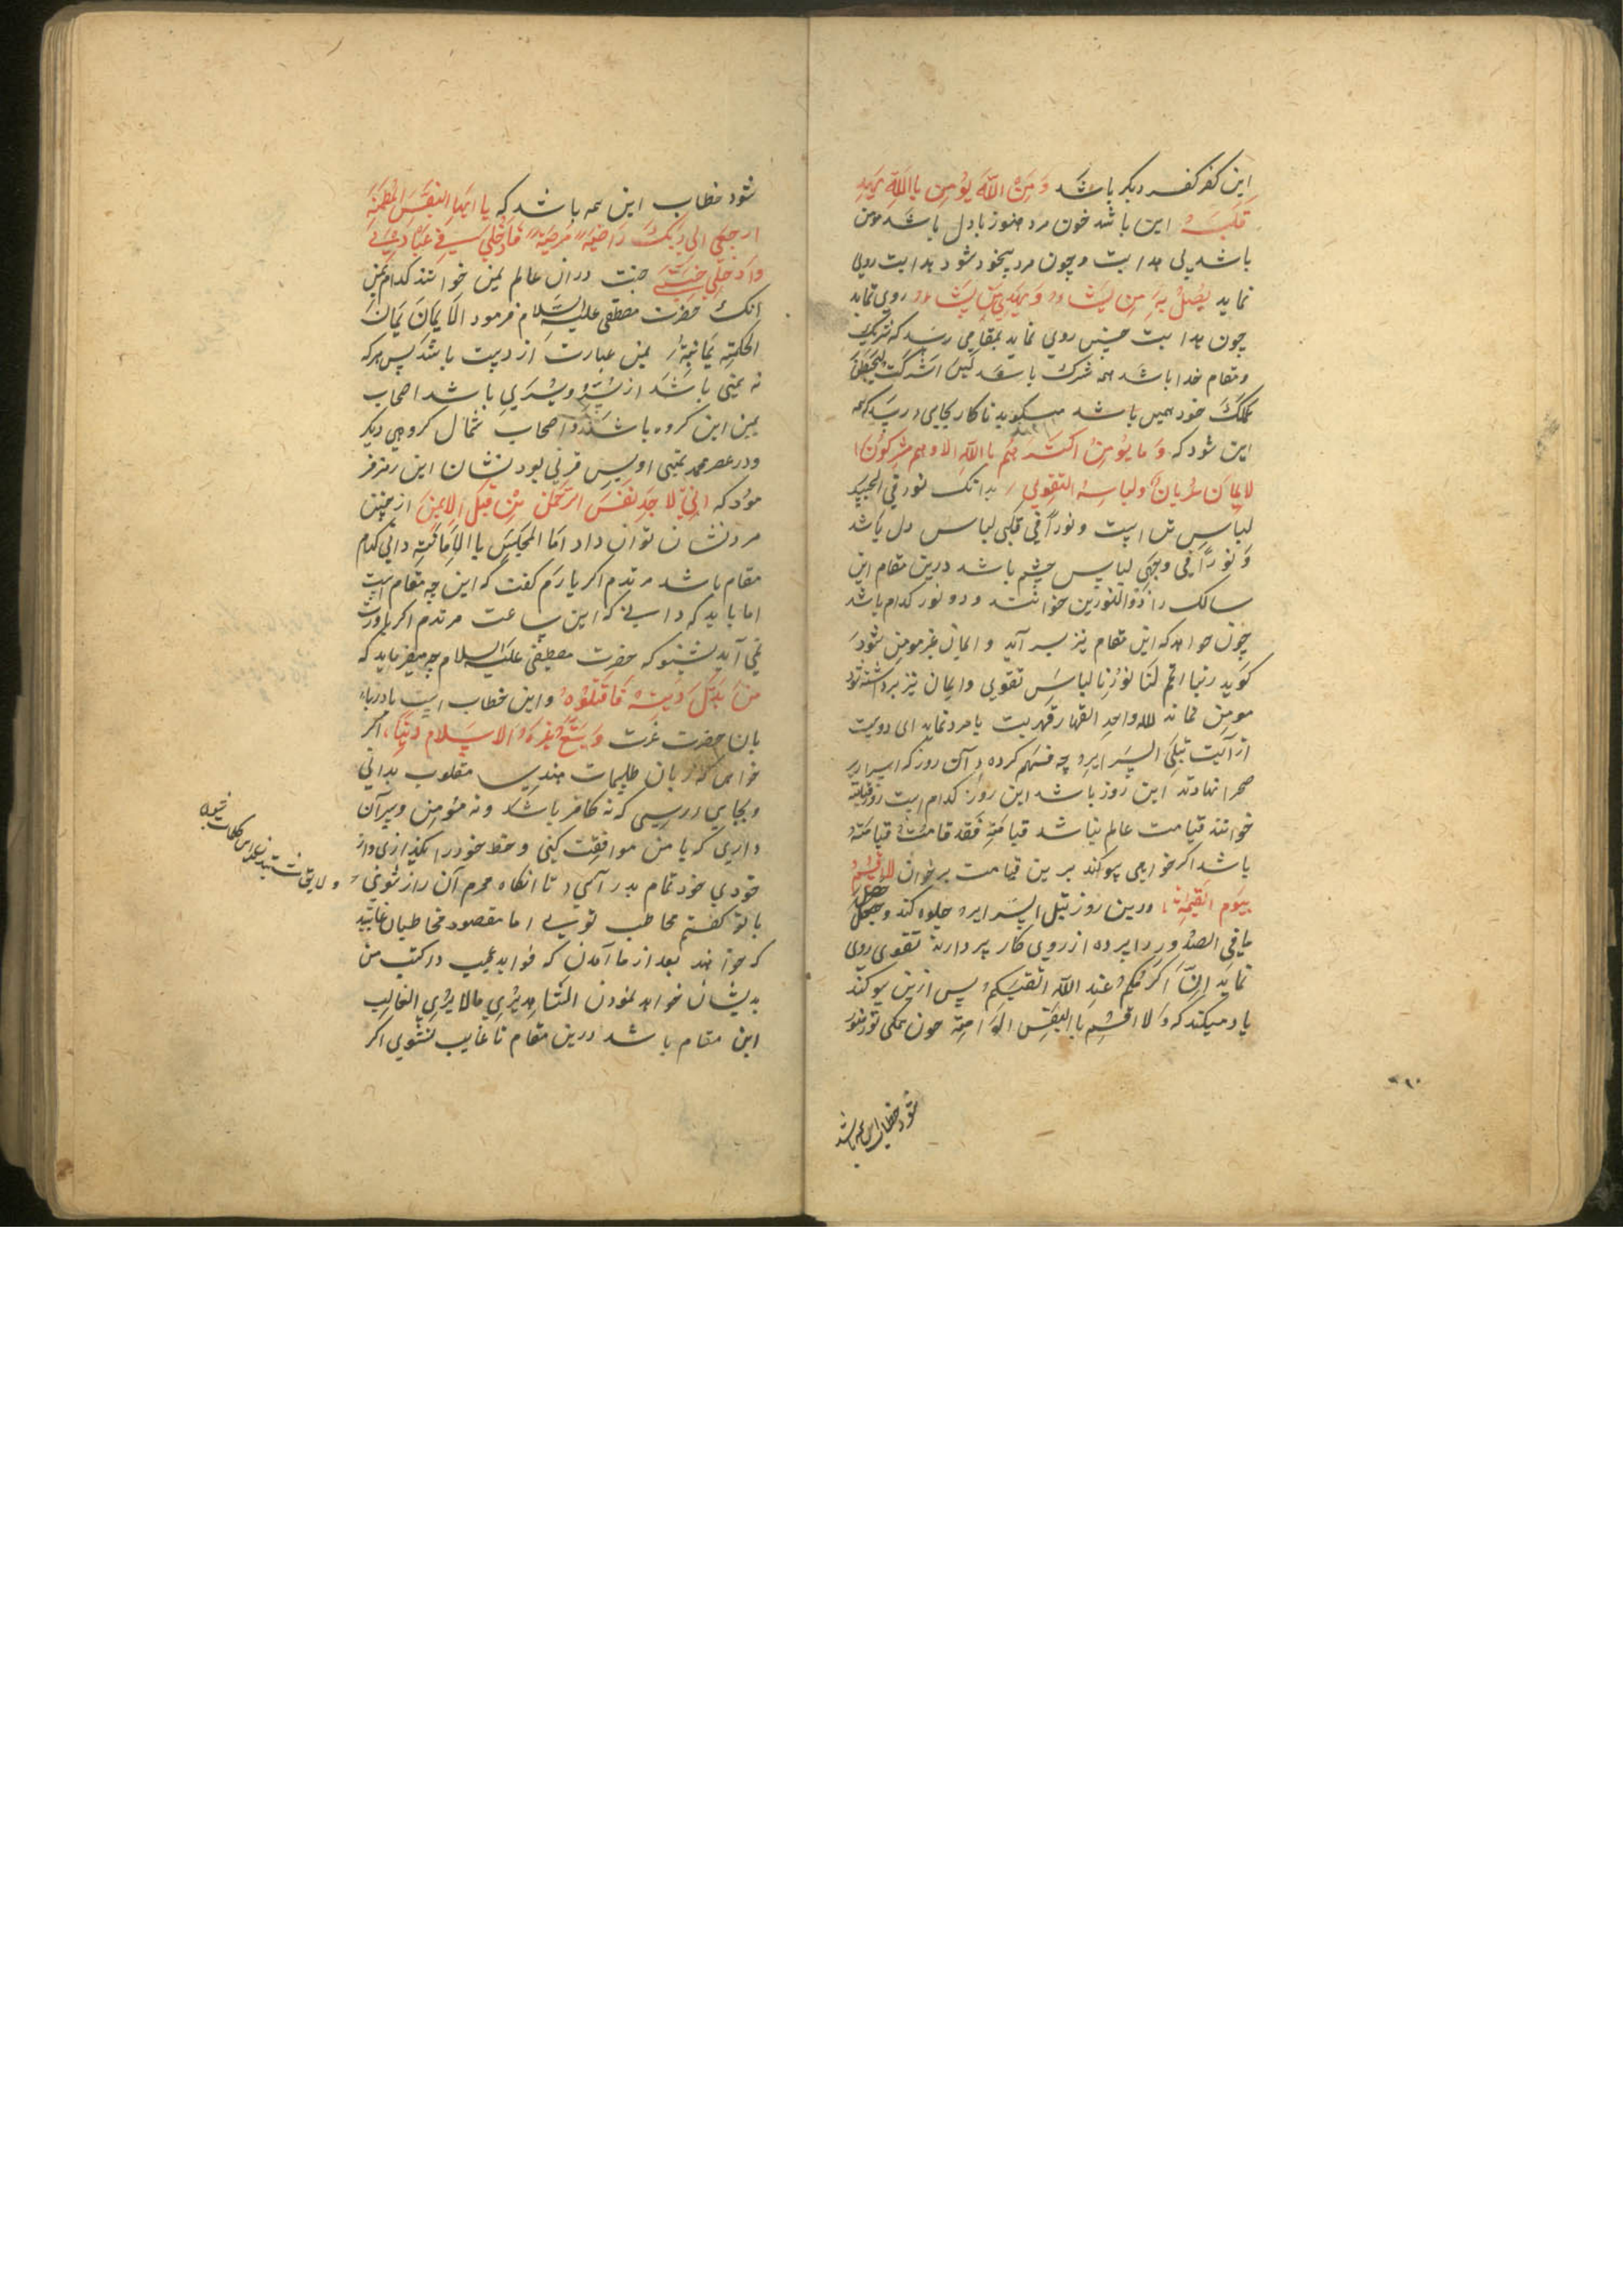 این کفر کفر دیگر باشد وَمَنْ اللّٰهَ یُؤمِن بِااللّٰهِ یَهدِ
قَلبَهُ این باشد خون مرد هنوز بادل باشد مومن
باشد بی هدایت و چون مرد بیخود شود هدایت رویی
نماید یُضِلُّ بِهِ مِن یَشاءُ وَ یَهدِی مَن یَشاءُ روی نماید
چون هدایت حسن روی نماید بمقامی رسد که شرک
و مقام خدا باشد همه شرک باشد لَئِن اشرَکتَ لَیَحبَطَنَّ
عَمَلُکَ خود همین باشد میگوید تا کار بجایی در رسد که همه
این شود که وَ ما یُؤمِنُ اکثَرُهُم باِاللّٰهِ الا و هم مشرکُون ا
لایمان عُریانٌ ولباسهُ التقوی بدانک نور فی الجسد
لباس تن است و نوراً فی قلبی لباس دل باشد
وَ نوراً فی وجهی لباس چشم باشد درین مقام این
سالک را ذوالنورین خوانند و دو نور کدام باشد
چون خواهد که ازین مقام نیز بر آید و ایمان غیر مومن شود
گوید ربنا اتمم لنا نُورنا لباسِ تقوی و ایمان نیز برداشته شود
مومن نماند لله واحد القهار قهریت با مرد نماید ای دوست
از آیت تبلَی السَرایر چه فهم کرده آن روز که اسرار بر
صحرا نهادند این روز باشد این روز کدام است روز قیامت
خوانند قیامت عالم نباشد قیامَتِ فَقد قامَتُ قیامَتهُ
باشد اگر خواهی سوگند برین قیامت برخوان لااُقسِمُ
بِیَوم القیمَة درین روز تبلَ السَرایر جلوه کند و حصل
مافی الصدُور را پرده از روی کار بردارند تقوی روی
نماید اِنَّ اَکرَمَکم عِندَ اللّٰه اتقیکم پس ازین سوگند
یاد میکند که وَ لا اقسِم بِاالنَفسِ اللوّامة خون همگی تو در نور
شود خطاب این همه باشد
شود خطاب این همه باشد که یا ایَّها النَفسُ المُطمَئِنَّةُ
ارجعی الی رَبّکِ رَاضیَةً مَرضیَةً فَادخُلی فی عِبَادِی
وَادخُلی جنتی جنت در آن عالم یمن خوانند کدام یمن
آنک حضرت مصطفی علیه السَّلام فرمود الَایمان یَمان
الحکمته یَمانیهُ یمن عبارت از دست باشد پس هر که
نه یمنی باشد از یمین ویسری باشد اصحاب
یمین این کروه باشند و اصحاب شمال کروهی دیکر
و در عصر محمد یمنی اویس قرنی بود نشان این رمز فر
مود که اِنّی لَاجِدُ نفَسَ الرّحمٰن مِن قِبَل الایمن از چنین
مرد نشان توان داد اما المجلس بالامانته دانی کدام
مقام باشد مرتدم اکر یارم کفت که این چه مقام است
اما باید که دانی که این ساعت مرتدم اکر باورت
نمی آید بشنو که حضرت مصطفی علیه السلام چه میفرماید که
مَن بَدّلَ دِینَهُ فَاقتلُوهُ و این خطاب است با در
بان حضرت عزت وَ یَبتَغُ غیرَ الاسَلام دیناً اکر
خواهی که زبان طلیمات هندسی مقلوب بدانی
و بجایی در رسی که نه کافر باشد و نه مؤمن و سر آن
داری که با من موافقت کنی و حظ خود را بگذاری و از
خودی خود تمام بدر آیی تا انکاه محرم آن راز شوی
با تو کفتم مخاطب تویی اما مقصود مخاطبان غایبند
که خواهند بعد از ما آمدن که فواید عجیب در کتب من
بدیشان خواهد نمودن الشَاهِد یُرَی مالا یرَی الغایب
این مقام باشد درین مقام تا غایب نشوی اکر